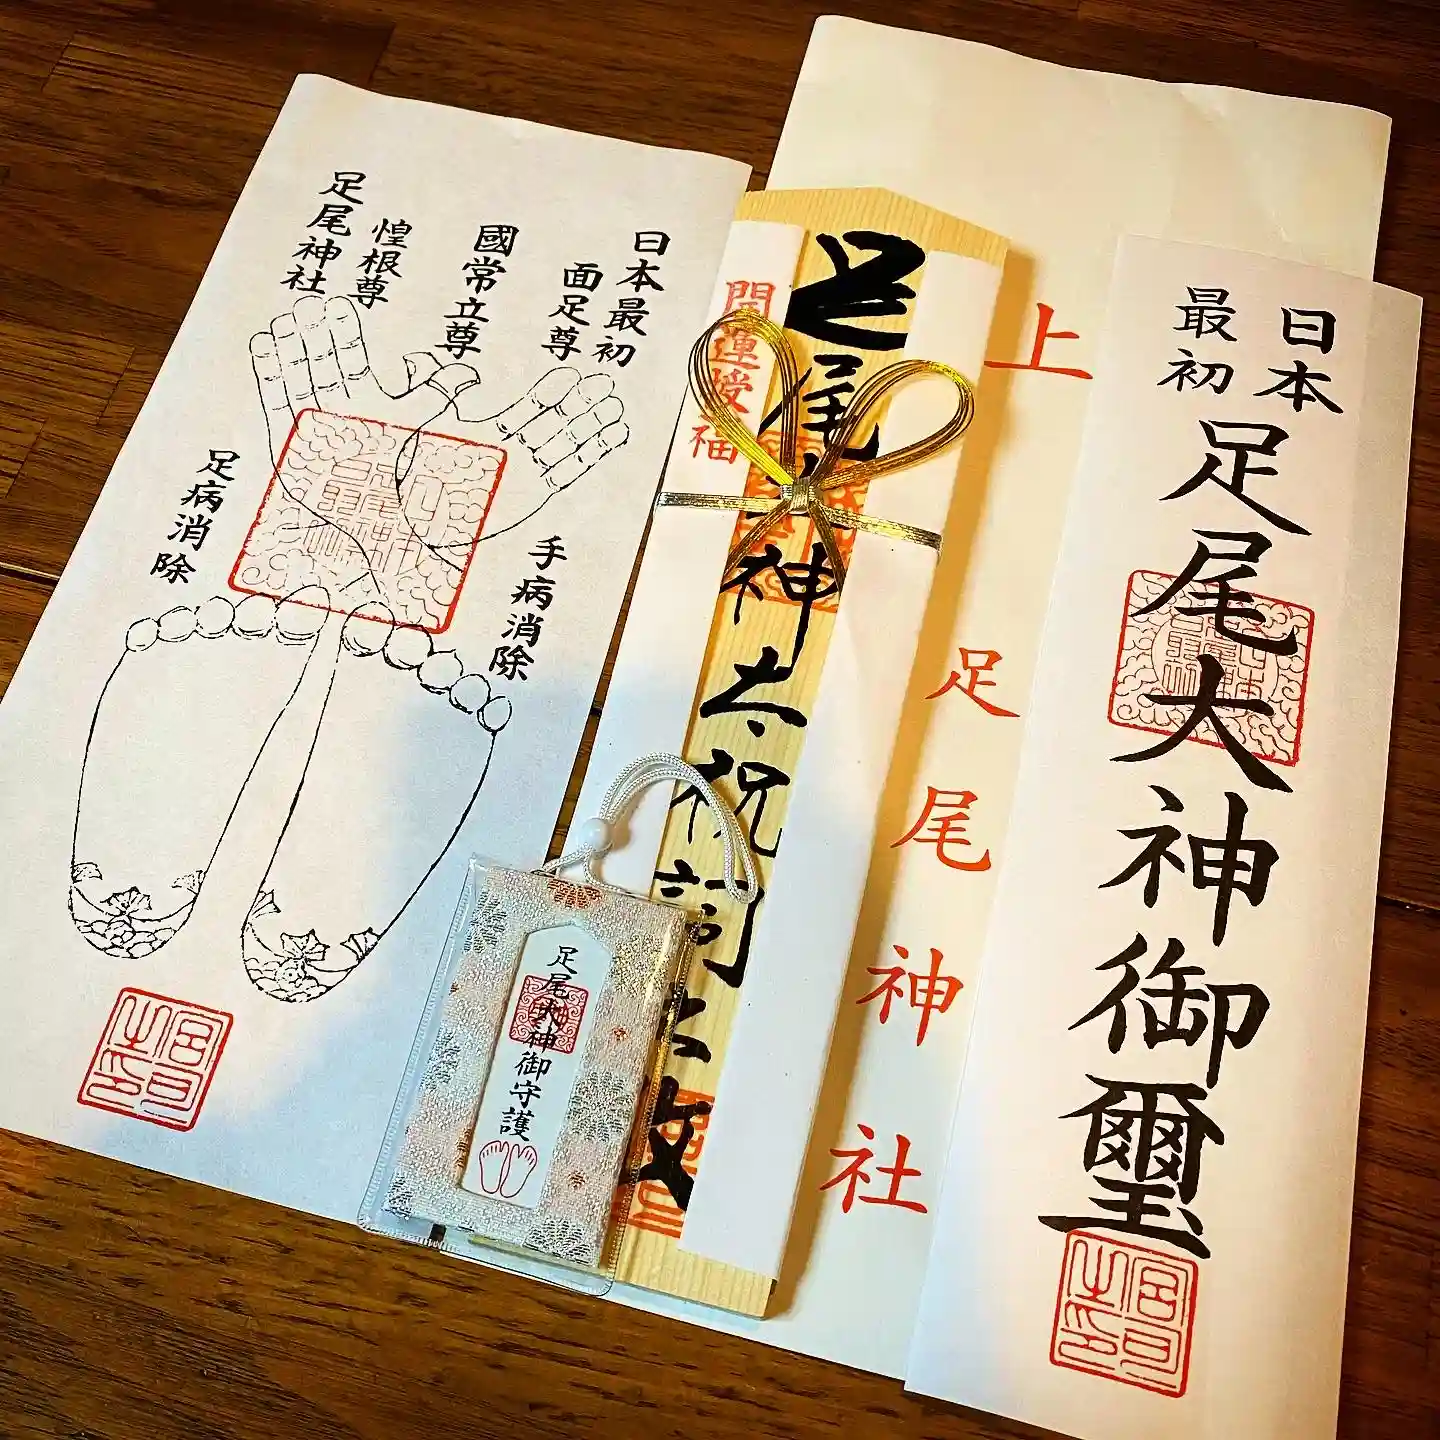 日本最初
面足尊
國常立尊
惶根尊
足尾神社
手病消除
足病消除
開運授福
足尾大神太祝詞
足尾大神御守護
上
足尾神社
日本
最初
足尾大神御璽